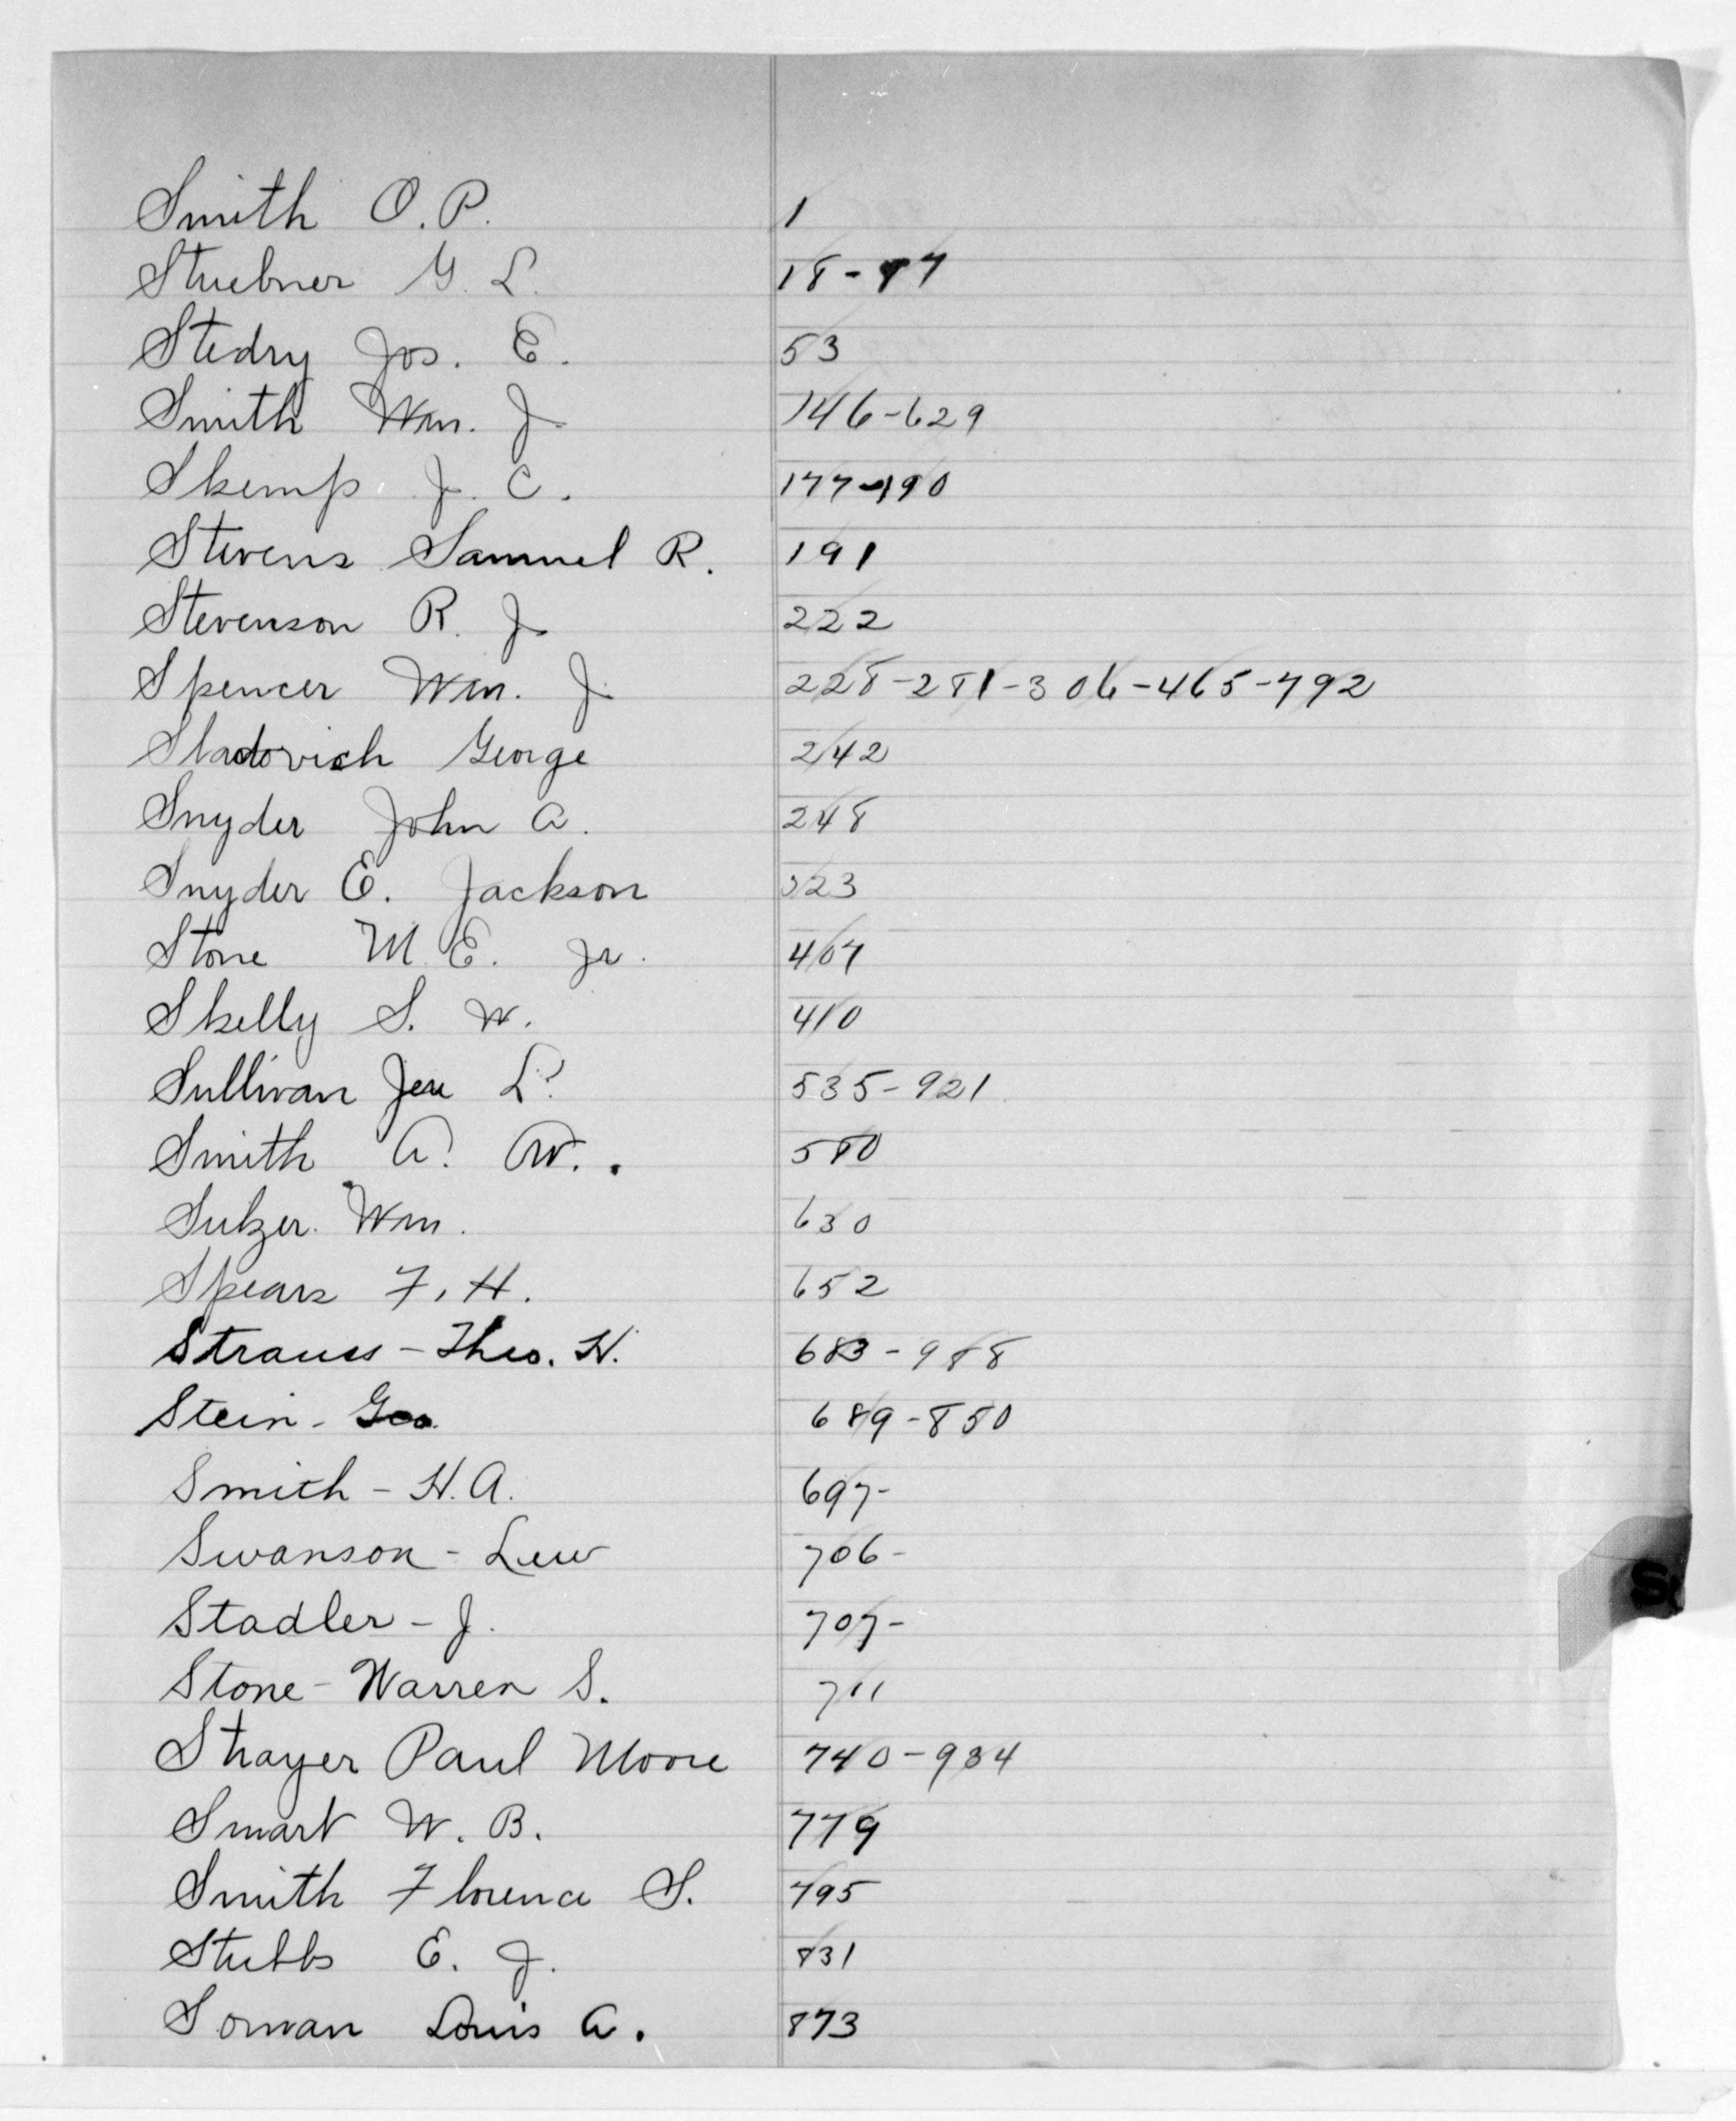 Smith O. P. 1
Stuebner G. L. 18-97
Stedry Jos. E. 53
Smith Wm. J. 146-629
Skemp J. C. 177-190
Stevens Samuel R. 191
Stevenson R. J. 222
Spencer Wm. J. 228-281-306-465-792
Sladovich George 242
Snyder John A. 248
Snyder E. Jackson 323
Stone M. E. Jr. 407
Skelly S. W. 410
Sullivan Jere L. 535-921
Smith A. W. 580
Sulzer Wm. 630
Spears F. H. 652
Strauss - Theo. H. 683-988
Stein - Geo. 689-850
Smith - H. A. 697-
Swanson - Lew 706-
Stadler - J. 707-
Stone - Warren S. 711
Strayer Paul Moore 740-934
Smart W. B. 779
Smith Florence S. 795
Stubbs E. J. 831
Soman Louis A. 873